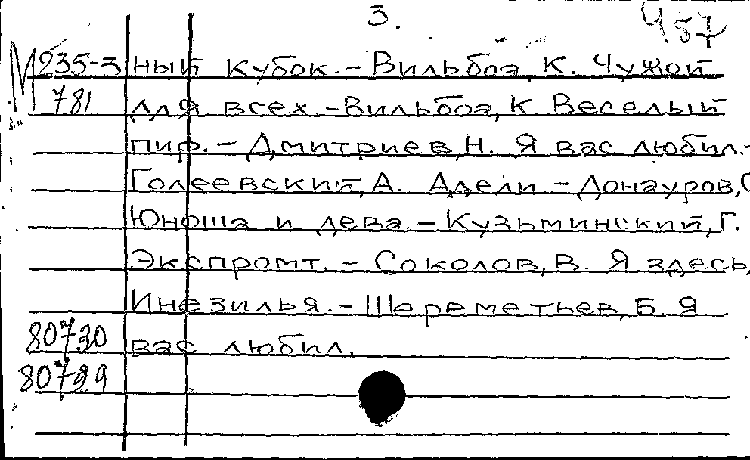 3.
457
М 235-3 ный кубок.- Вильбоа, К. Чужой
781 для всех.-Вильбоа, К Веселый
пир.- Дмитриев, Н. Я вас любил.-
Голеевский, А. Адели - Донауров, С
Юноша и дева - Кузьминский, Г.
Экспромт.- Соколов, В. Я здесь,
Инезилья.- Шереметьев, Б. Я
80730 вас любил.
80799